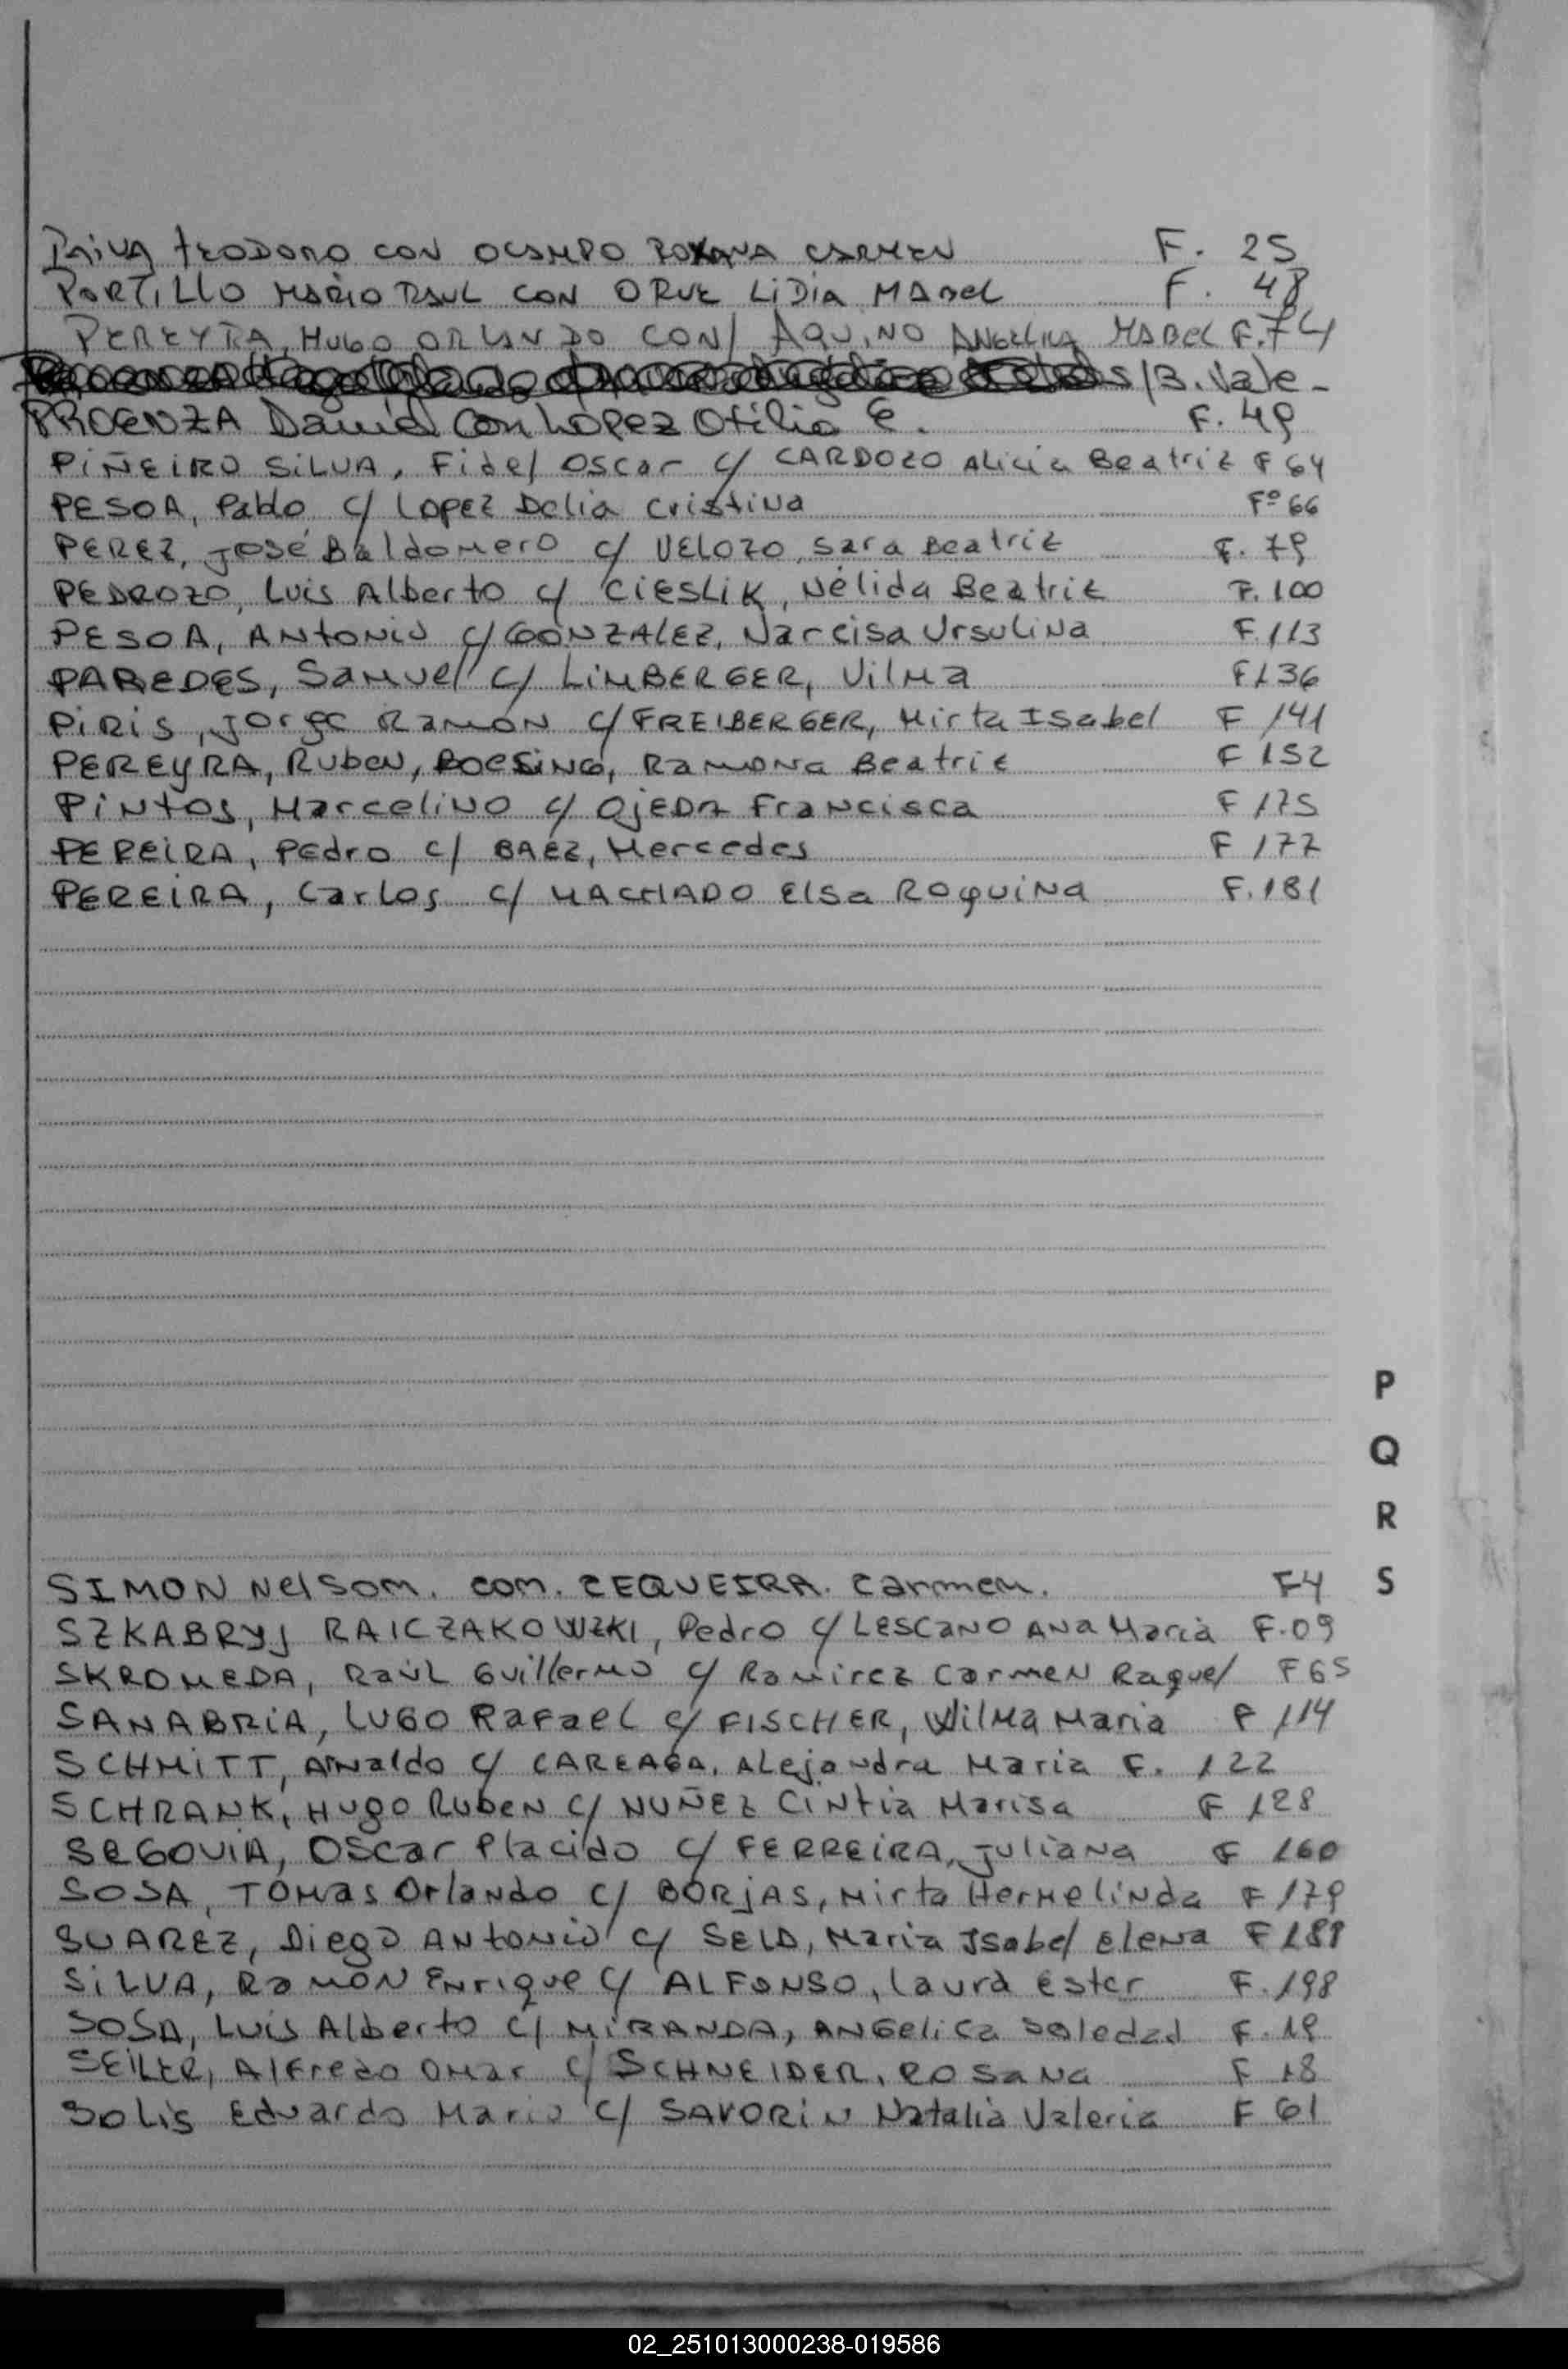 PAIVA TEODORO CON OCAMPO ROXANA CARMEN F. 25
PORTILLO MARIO RAUL CON ORUE LIDIA MABEL F. 48
PEREYRA, HUGO ORLANDO CON/ AQUINO ANGELICA MABEL F.74
S/B. Vale-
PROENZA David Con Lopez Otilia E. F. 49
PIÑEIRO SILVA, Fidel Oscar c/ CARDOZO Alicia Beatriz F 64
PESOA, Pablo c/ LOPEZ Delia Cristina Fº 66
PEREZ, José Baldomero c/ VELOZO, Sara Beatriz F. 79
PEDROZO, Luis Alberto c/ CIESLIK, Nélida Beatriz F. 100
PESOA, Antonio c/ GONZALEZ, Narcisa Ursulina F.113
PAREDES, Samuel c/ LIMBERGER, Vilma F136
PIRIS, Jorge Ramón c/ FREIBERGER, Mirta Isabel F 141
PEREYRA, Ruben, BOESING, Ramona Beatriz F 152
PINTOS, Marcelino c/ OJEDA Francisca F 175
PEREIRA, Pedro c/ BAEZ, Mercedes F 177
PEREIRA, Carlos c/ MACHADO Elsa Roquina F.181
P
Q
R
S
SIMON Nelsom. com. CEQUEIRA. Carmem. F4
SZKABRYJ RAICZAKOWZKI, Pedro c/ LESCANO Ana Maria F.09
SKROMEDA, Raúl Guillermo c/ Ramirez Carmen Raquel F65
SANABRIA, LUGO Rafael c/ FISCHER, Wilma Maria F 114
SCHMITT, Arnaldo c/ CAREAGA, Alejandra Maria F. 122
SCHRANK, Hugo Ruben c/ NUÑEZ Cintia Marisa F 128
SEGOVIA, Oscar Placido c/ FERREIRA, Juliana F 160
SOSA, Tomas Orlando c/ BORJAS, Mirta Hermelinda F 179
SUAREZ, Diego Antonio c/ SELD, Maria Isabel Elena F 189
SILVA, Ramón Enrique c/ ALFONSO, Laura Ester F. 198
SOSA, Luis Alberto c/ MIRANDA, Angelica Soledad F. 19
SEILER, Alfredo Omar c/ SCHNEIDER, Rosana F 18
Solis Eduardo Mario c/ SAVORIN Natalia Valeria F 61
02_251013000238-019586